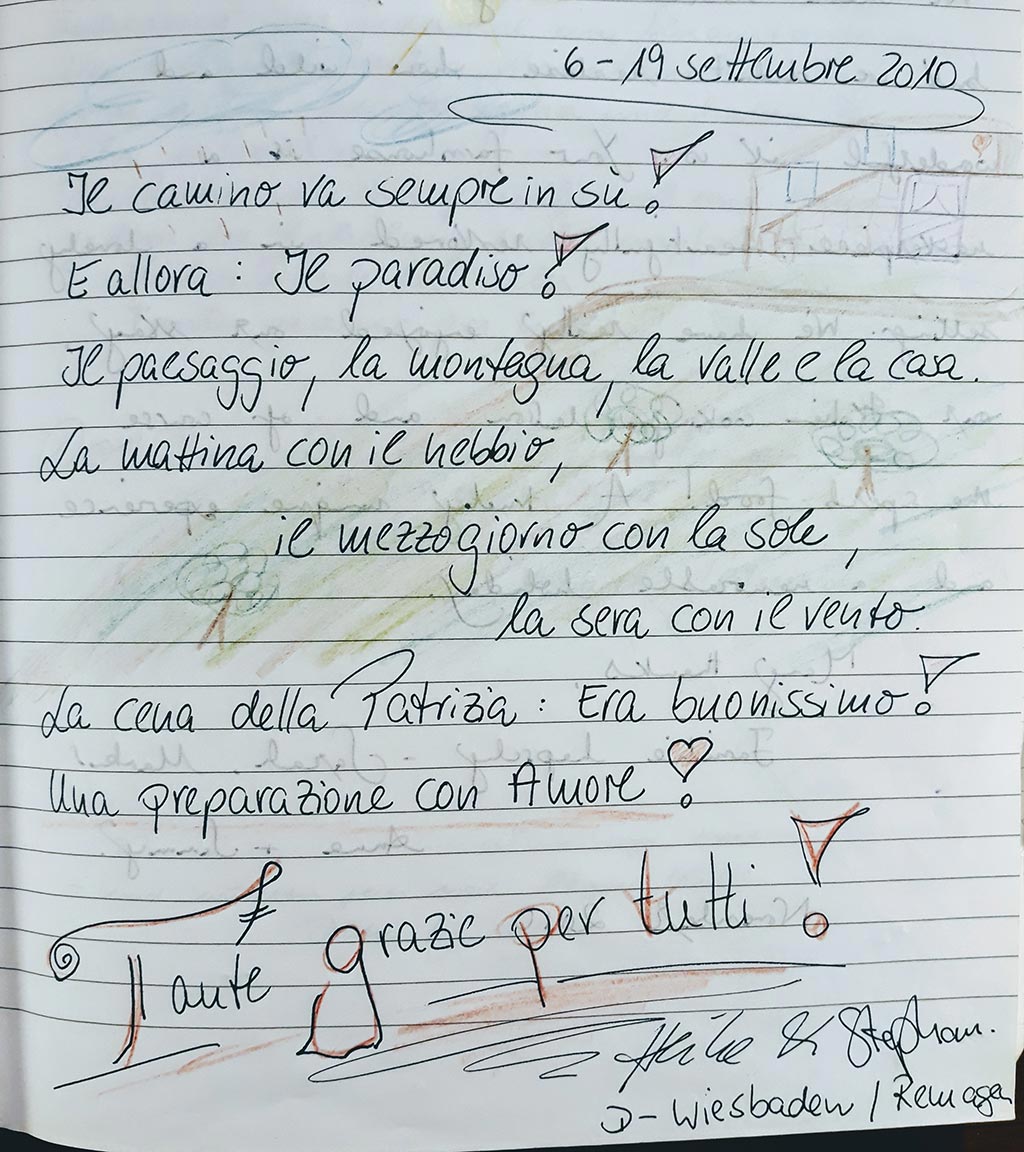 6 - 19 settembre 2010
Il camino va sempre in sù!
E allora : Il paradiso!
Il paesaggio, la montagna, la valle e la casa.
La mattina con il nebbio,
il mezzogiorno con la sole,
la sera con il vento.
La cena della Patrizia : Era buonissimo!
Una preparazione con Amore!
Tante grazie per tutti!
Heike & Stephan.
D - Wiesbaden / Remagen